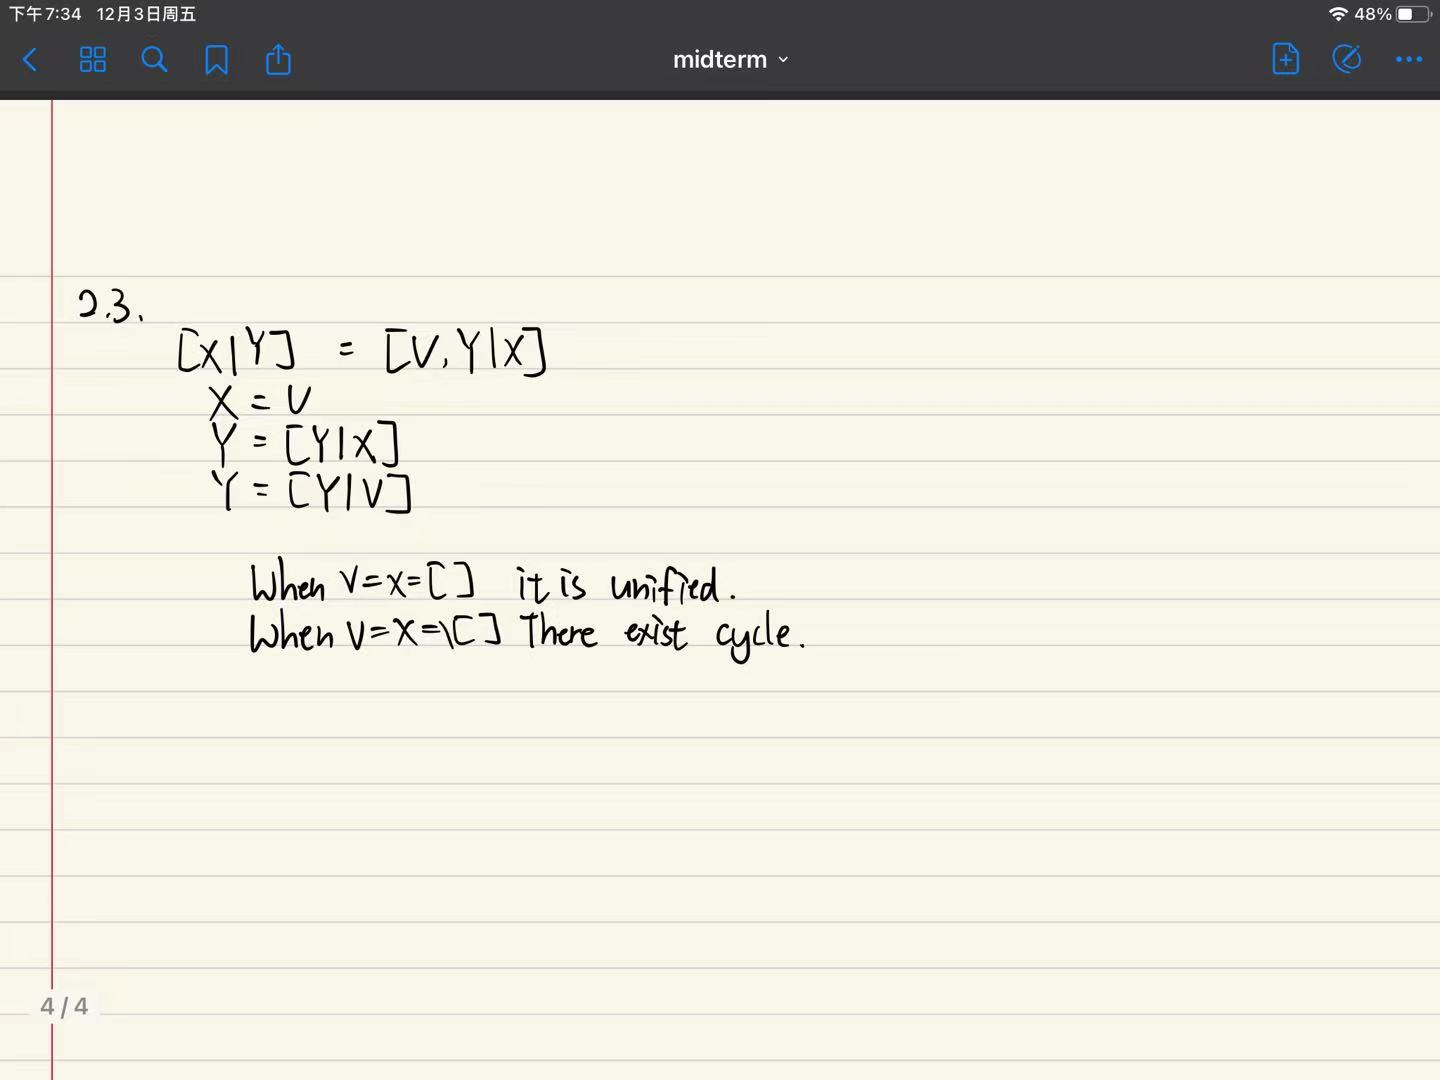 下午7:34 12月3日周五
48%
midterm
2.3.
[X|Y] = [V,Y|X]
X = V
Y = [Y|X]
Y = [Y|V]
When V=X=[] it is unified.
When V=X=\[] There exist cycle.
4/4